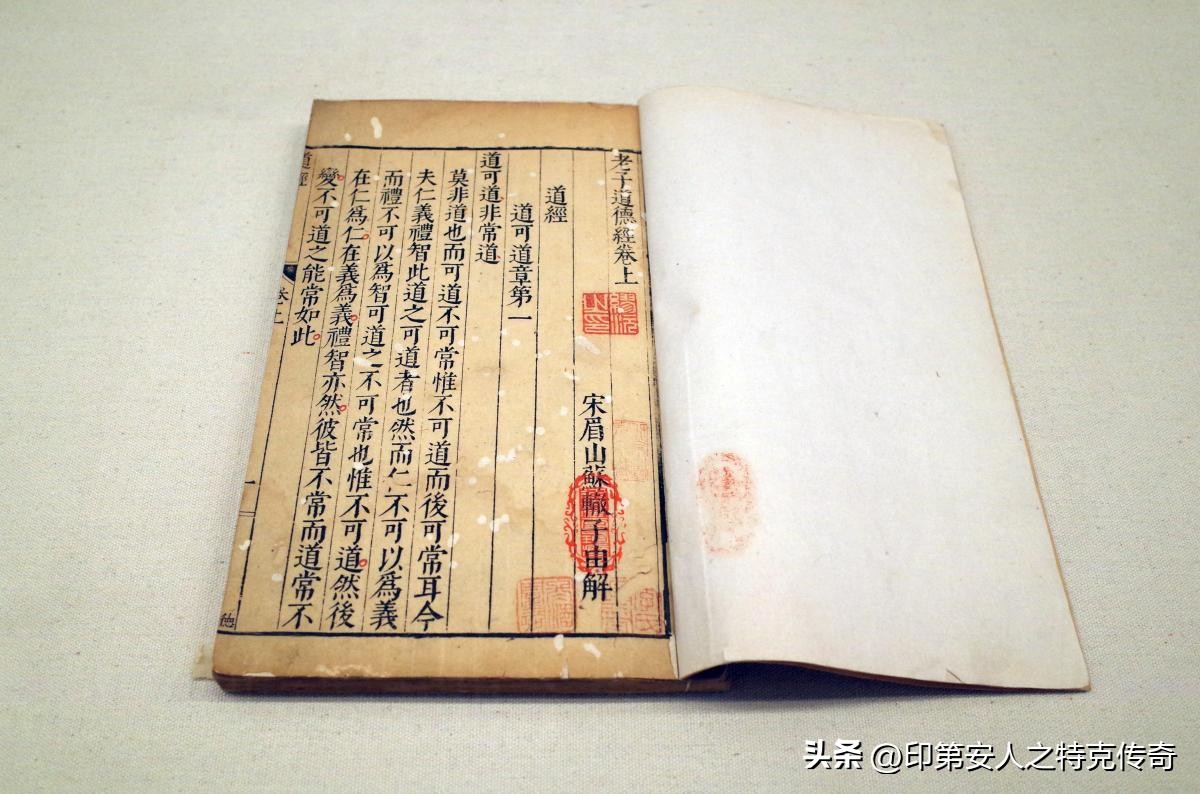 老子道德經卷上
宋眉山蘇轍子由解
道經
道可道章第一
道可道非常道
莫非道也而可道不可常惟不可道而後可常耳今
夫仁義禮智此道之可道者也然而仁不可以為義
而禮不可以為智可道之不可常也惟不可道然後
在仁為仁在義為義禮智亦然彼皆不常而道常不
變不可道之能常如此
道經
卷上
一
德
头条 @印第安人之特克传奇